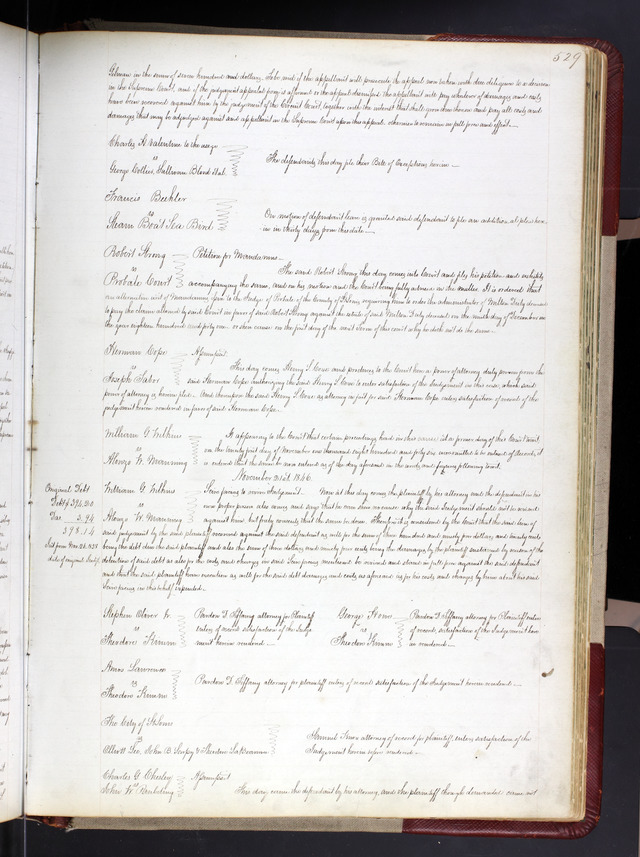 529
Gilman in the sum of seven hundred and dollars. To be void if the appellant will prosecute the appeal now taken with due diligence to a decision
in the Supreme Court, and if the judgment appealed from is affirmed or the appeal dismissed the appellant will pay whatever of damages and costs
have been recovered against him by the judgment of the Circuit Court, together with the interest that shall grow due hereon and pay all costs and
damages that may be adjudged against said appellant in the Supreme Court upon this appeal, otherwise to remain in full force and effect.
Charles A. Valentine to the use &c
vs
George Collier, Sullivan Blood et al.
The defendants this day file their Bill of Exceptions herein
Francis Beehler
vs
Steam Boat Sea Bird
On motion of defendant leave is granted said defendant to file an additional plea here-
in in thirty days from this date
Robert Strong
vs
Probate Court
Petition for Mandamus
The said Robert Strong this day comes into Court and files his petition and
accompanying the same, and on his motion and the Court being fully advised in the matter, It is ordered that
an alternative writ of Mandamus issue to the Judge of Probate of the County of requiring him to order the administrator of Walter Daly deceased
to pay the claim allowed by said Court in favor of said Robert Strong against the estate of said Walter Daly deceased on the ninth day of December in
the year eighteen hundred and forty one or show cause on the first day of the next Term of this Court why he doth not do the same
Herman Cope
vs
Joseph Tabor
Assumpsit
This day comes Henry S. Coxe and produces to the Court here a power of attorney duly proven from the
said Herman Cope authorizing the said Henry S. Coxe to enter satisfaction of the Judgment in this case, which said
power of attorney is herein filed. And thereupon the said Henry S. Coxe as attorney in fact for said Herman Cope enters satisfaction of record of the
judgment herein rendered in favor of said Herman Cope.
William G. Wilkins
vs
Alonzo W. Manning
It appearing to the Court that certain proceedings had in this cause at a former day of this Court to wit
on the twenty first day of November one thousand eight hundred and forty six were omitted to be entered of Record, it
is ordered that the same be now entered as of the day aforesaid in the words and figures following to wit.
November 21st 1846.
Original Debt
Debt $394.20
Dam 3.94
398.14
Int from Nov. 26. 1838
date of original Judgt
William G. Wilkins
vs
Alonzo W. Manning
Scire facias to revive Judgment.
Now at this day comes the plaintiff by his attorney and the defendant in his
own proper person also comes and says that he can show no cause why the said Judgment should not be revived
against him but freely consents that the same be done. Therefore it is considered by the Court that the said lien of
said judgment by the said plaintiff recovered against the said defendant as well for the sum of three hundred and ninety four dollars and twenty cents
being the debt due the said plaintiff and also the sum of three dollars and ninety four cents being the damages by the plaintiff sustained by reason of the
detention of said debt as also for the costs and charges in said Scire facias mentioned be revived and stand in full force against the said defendant
and that the said plaintiff have execution as well for the said debt damages and costs as aforesaid as for his costs and charges by him about his said
Scire facias in this behalf expended.
Stephen Glover Jr.
vs
Theodore Kerrum
Pardon D. Tiffany attorney for Plaintiff
enters of record satisfaction of the Judg-
ment herein rendered
George Howe
vs
Theodore Kerrum
Pardon D. Tiffany attorney for Plaintiff enters
of record satisfaction of the Judgment here-
in rendered
Amos Lawrence
vs
Theodore Kerrum
Pardon D. Tiffany attorney for plaintiff enters of record satisfaction of the Judgment herein rendered
The City of St. Louis
vs
Elliott Lee, John B. Sarpy & Theodore LaBeaume
Samuel Knox attorney of record for plaintiff, enters satisfaction of the
Judgement herein before rendered
Charles G. Cherley
John Wm.
Assumpsit
This day comes the defendant by his attorney, and the plaintiff though demanded comes not